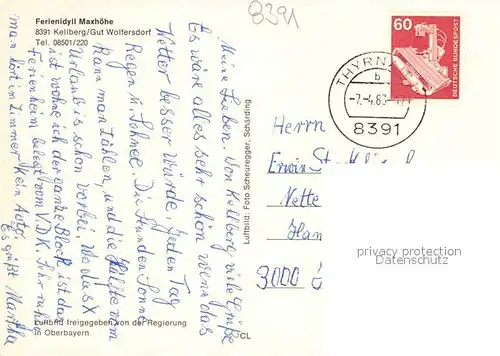 Ferienidyll Maxhöhe
8391 Kellberg/Gut Wolfersdorf
Tel. 08501/220
8391
60
DEUTSCHE BUNDESPOST
THYRN
b
-7.-4.83-
8391
Meine Lieben. Von Kellberg viele Grüße
Es wäre alles sehr schön wenn das
Wetter besser würde. Jeden Tag
Regen u. Schnee. Die Stunden Sonne
kann man zählen, und die Hälfte vom
Urlaub is schon vorbei. Wo das X
ist wohne ich der ganze Block ist das
Ferienheim belegt vom VDK Sehr ruhig
man hört im Zimmer kein Auto.
Es grüßt Martha
Luftbild: Foto Scheuregger, Schärding
Herrn
Erwin
Nette
Han
3000
privacy protection
Datenschutz
Luftbild freigegeben von der Regierung
in Oberbayern
CL